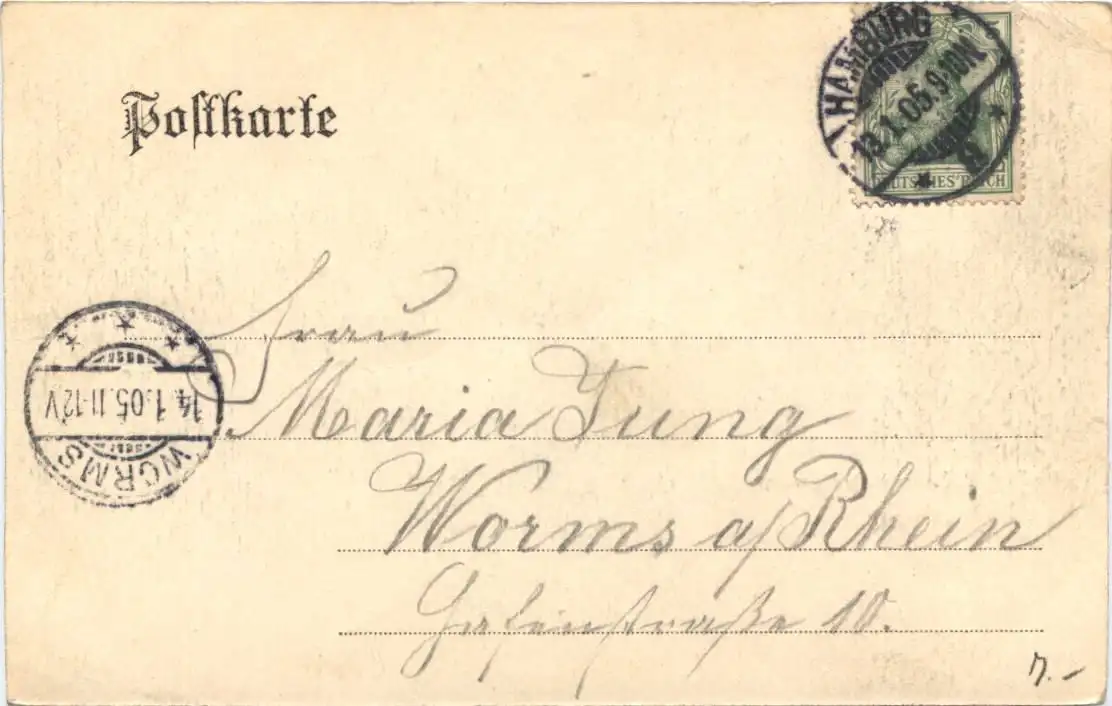 Postkarte
HAMBURG
13.1.05.9-10N.
DEUTSCHES REICH
Frau
Maria Jung
Worms a/Rhein
Hafenstraße 10.
14.1.05.11-12V
WORMS